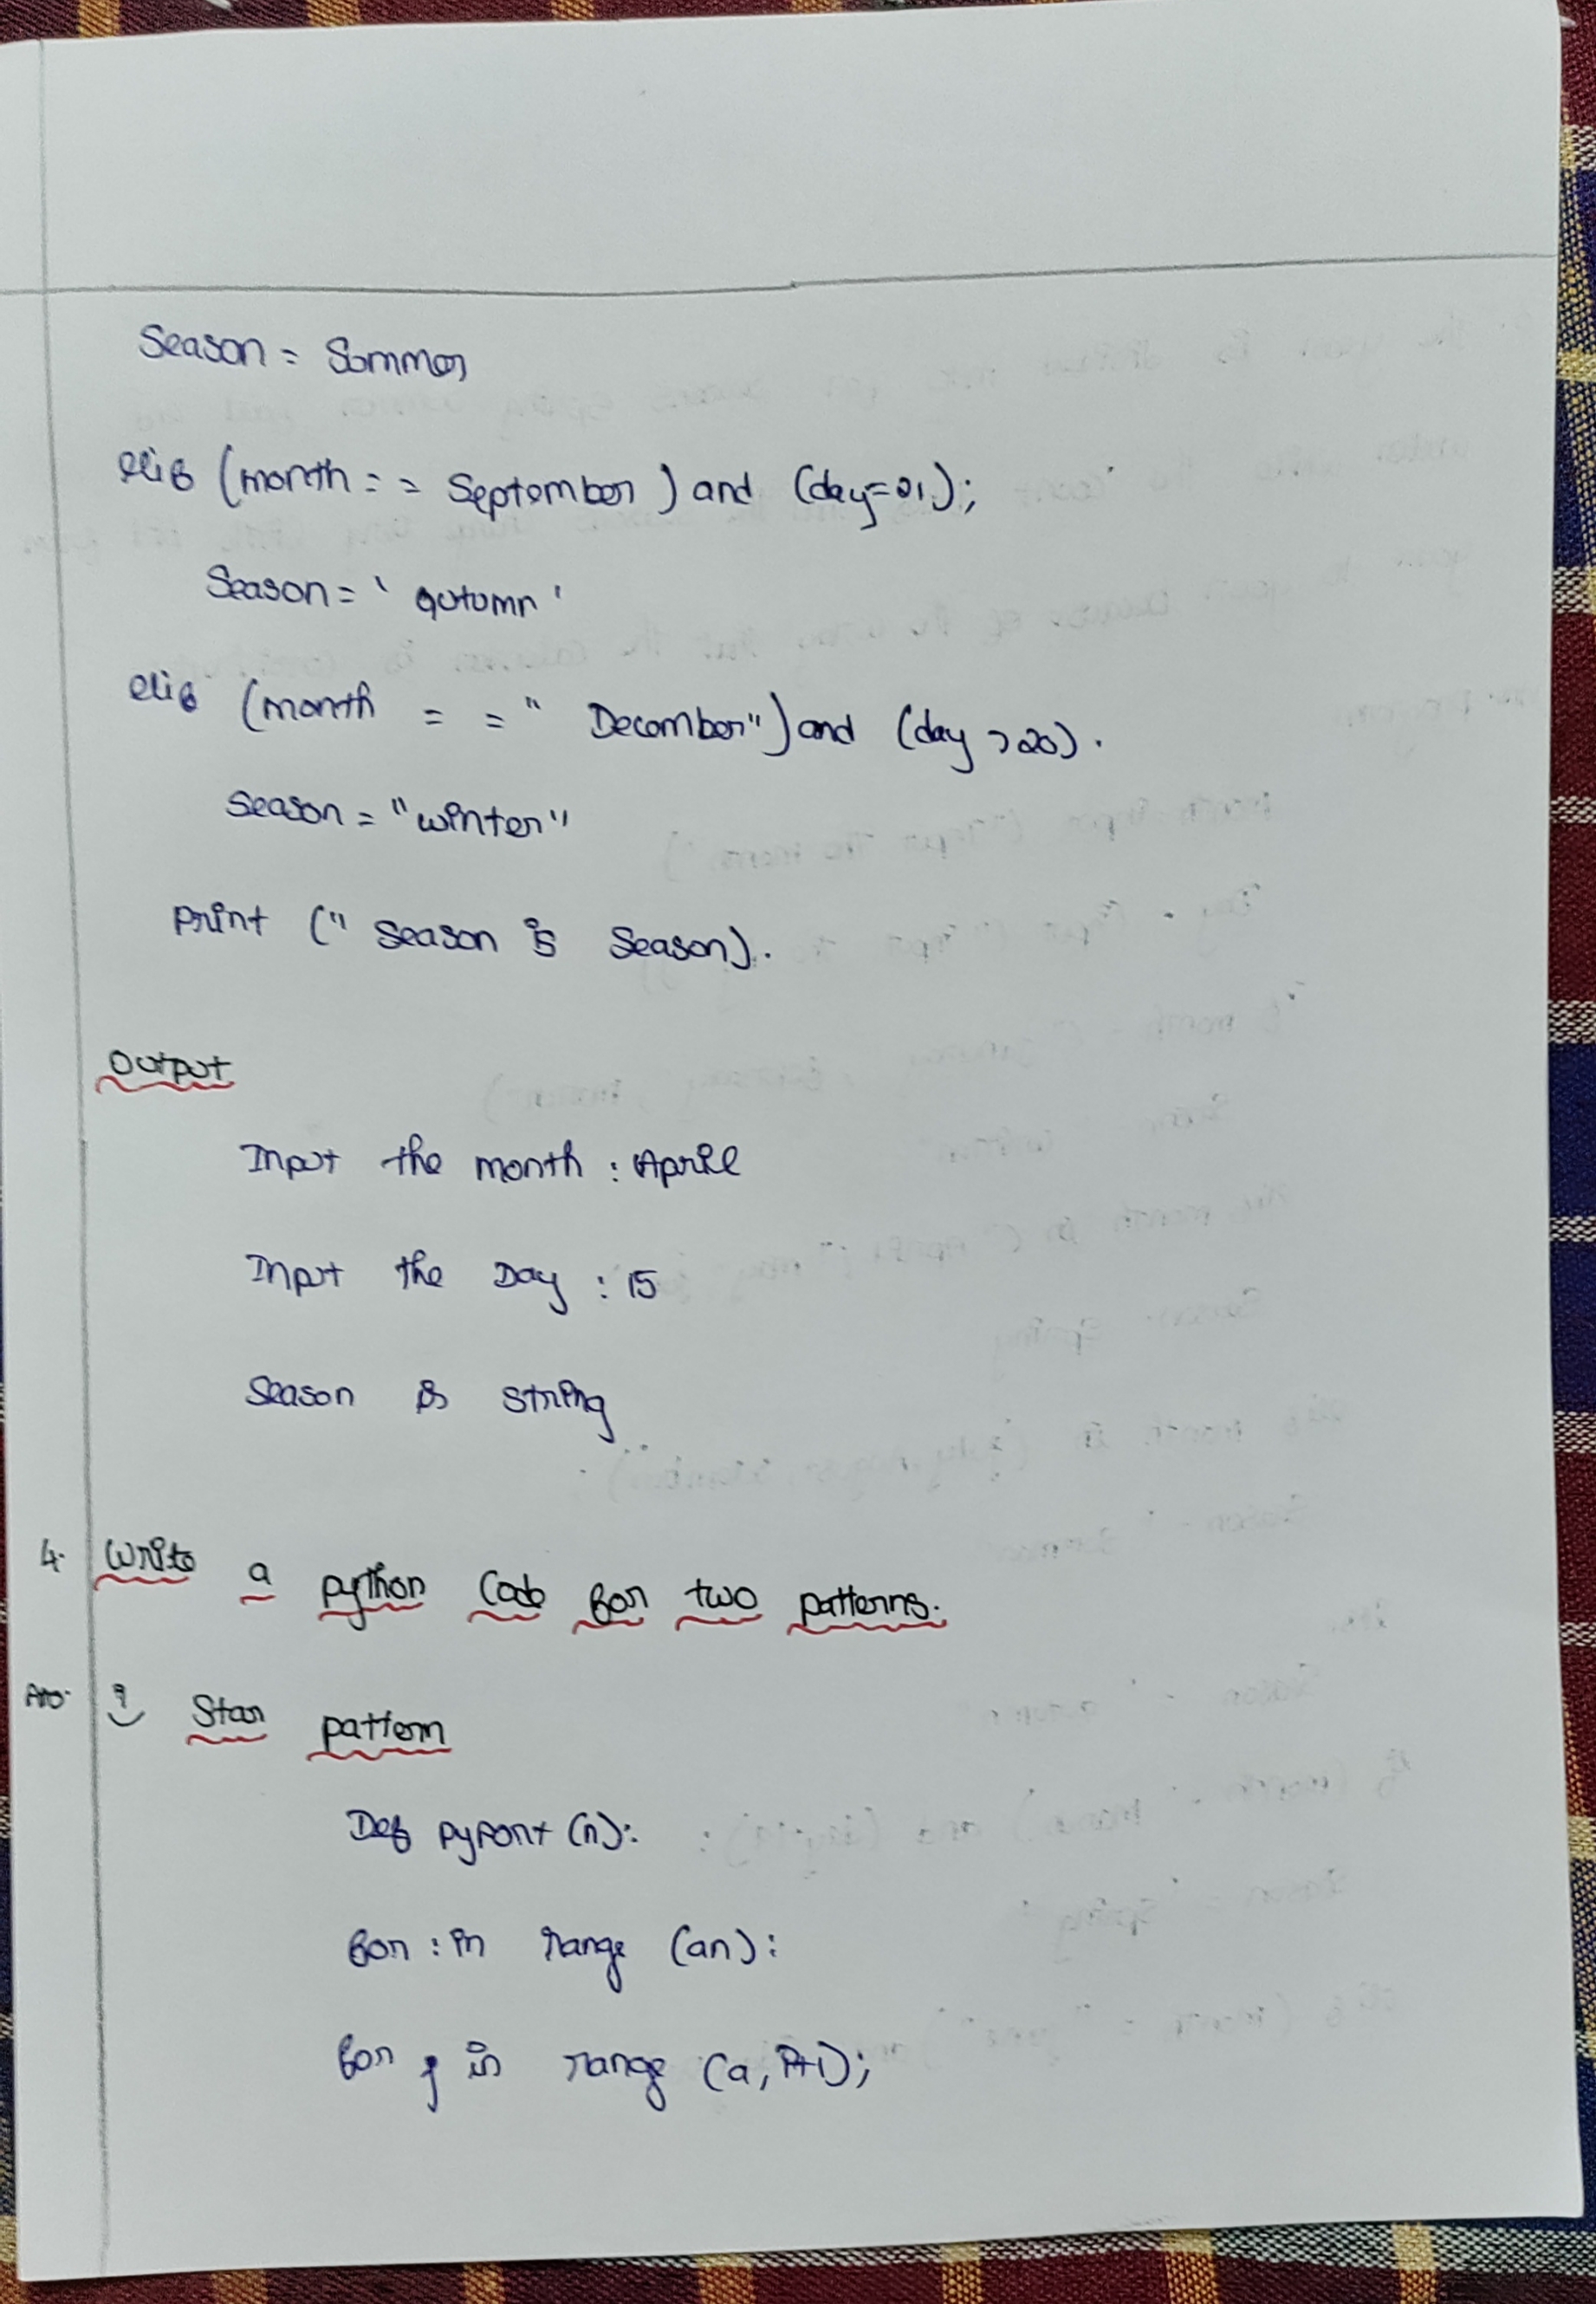 Season = Sommer
elif (month = = September ) and (day=21);
Season = ' automn '
elif (month = = " December") and (day >20).
Season = "winter"
Print (" Season is Season).
Output
Input the month : April
Input the Day : 15
Season is string
4. Write a python Code for two patterns.
Ans. i) Star pattern
Def pypont (n):
for : in range (an):
for j in range (a, i+1);